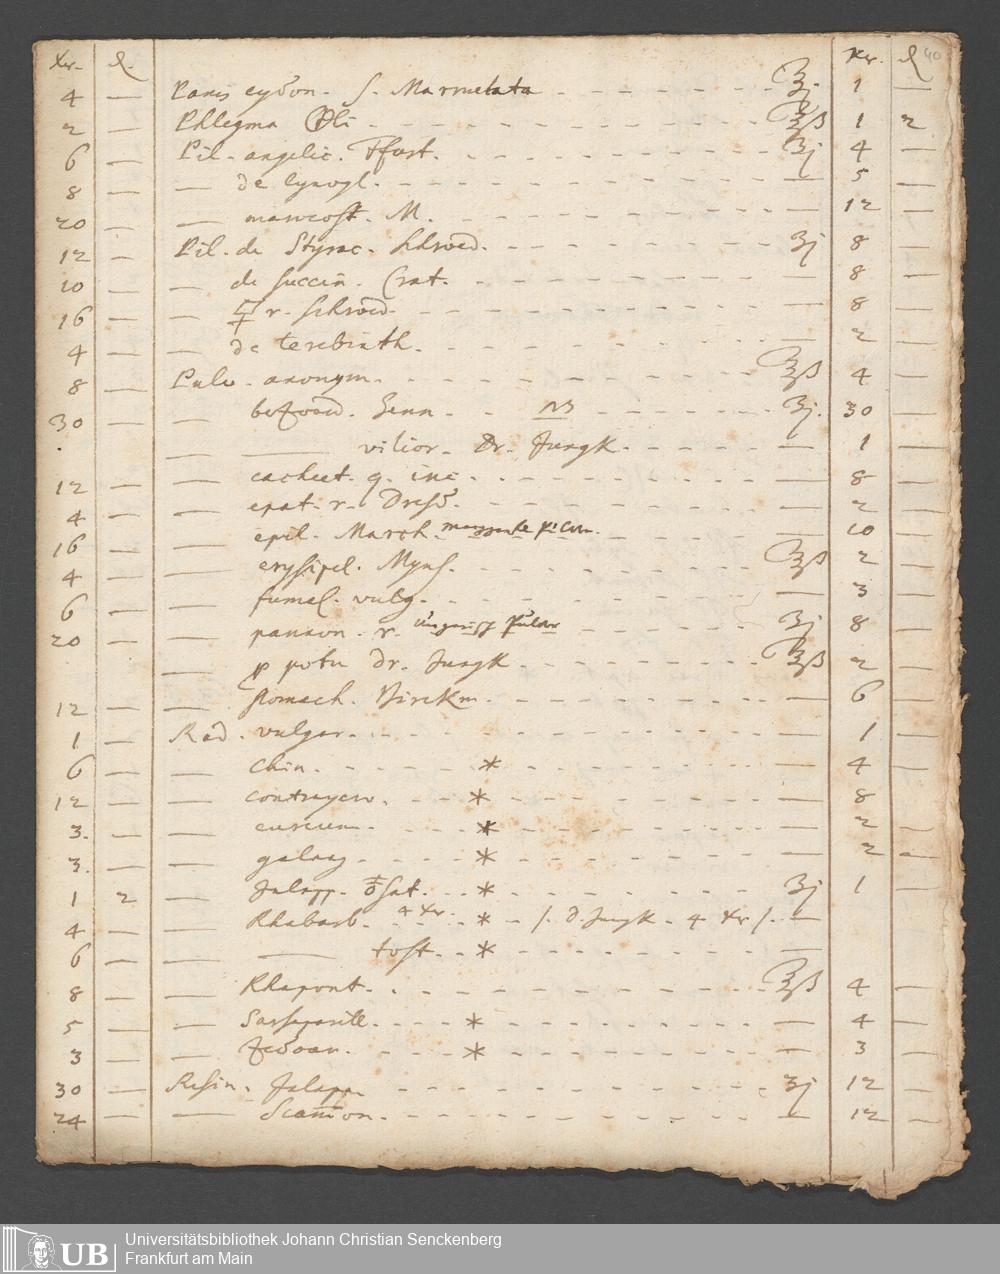 Xr. ₰. Kr. ₰ 40
4 — Panis cydon. s. Marmelata ʒj. 1 —
2 — Phlegma Oli ʒß 1 2
6 — Pil. angelic. ʒj 4 —
8 — — de Cynogl. — 5 —
20 — — mascost. M. — 12 —
12 — Pil. de Styrac. Schroed. ʒj 8 —
10 — — de Succin. Crat. — 8 —
16 — — r. Schroed. — 8 —
4 — — de terebinth. — 2 —
8 — Pulv. anonym. ʒß 4 —
30 — — bezoard. Senn. ʒj. 30 —
— — vilior. Dr. Jungk. 1 —
12 — — cachect. q. inc. — 8 —
4 — — epat. r. Dresd. — 2 —
16 — — epil. March. — 10 —
4 — — erysipel. Myns. ʒß 2 —
6 — — fumal. vulg. — 3 —
20 — — pannon. r. ungarisch Pulver ʒj 8 —
— p potu Dr. Jungk ʒß 2 —
12 — — stomach. Birckm. — 6 —
1 — Rad. vulgar. — 1 —
6 — — Chin. * — 4 —
12 — — contrayerv. * — 8 —
3. — — curcum. * — 2 —
3. — — galang. * — 2 —
1 2 — Jalapp. * ʒj 1 —
4 — — Rhabarb. 4 Xr. * — /. d. Jungk. 4 Xr /. —
6 — — — tost. * —
8 — — Rhapont. ʒß 4 —
5 — — Sarsaparill. * — 4 —
3 — — Zedoar. * — 3 —
30 — Resin. Jalapp. ʒj 12 —
24 — — Scamon. — 12 —
UB
Universitätsbibliothek Johann Christian Senckenberg
Frankfurt am Main